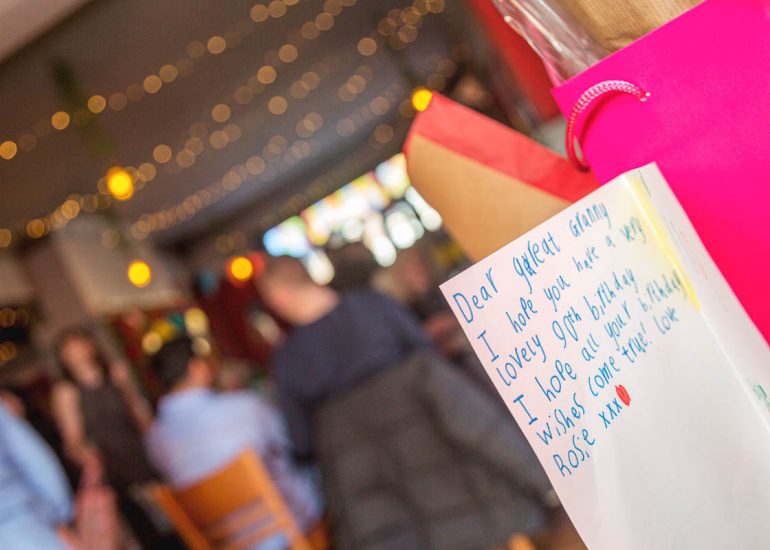 Dear great Granny
I hope you have a very
lovely 90th birthday
I hope all your birthday
wishes come true! Love
Rosie xxx